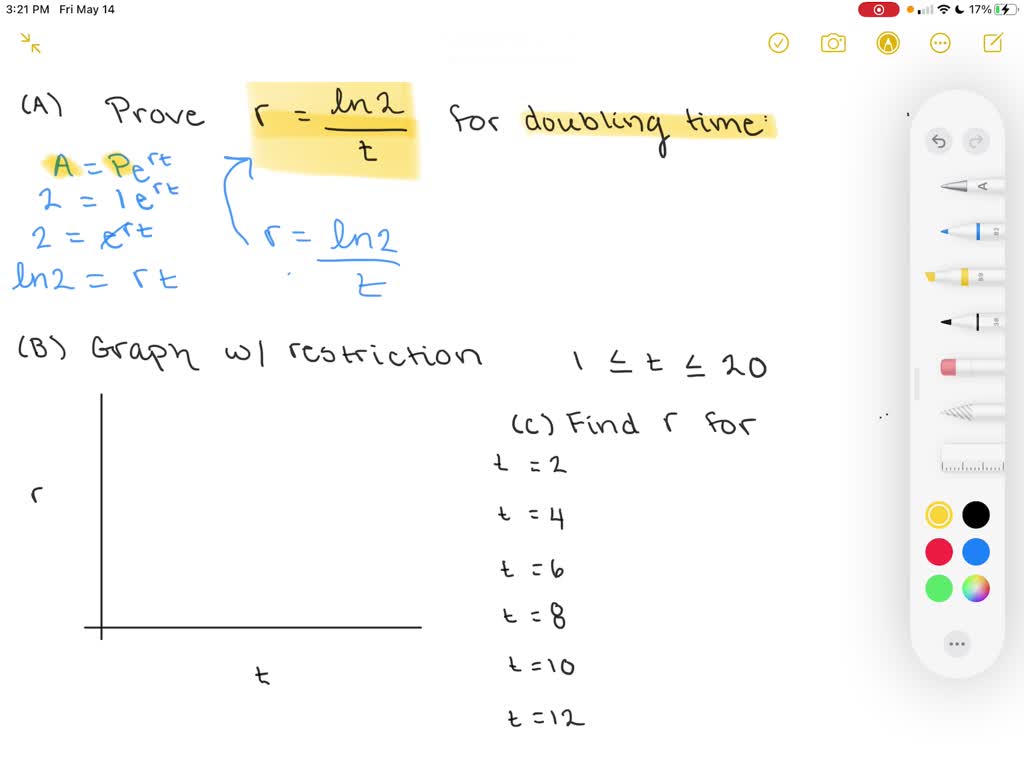 3:21 PM Fri May 14
17%
(A) Prove r = ln2/t for doubling time:
A = Pe^rt
2 = 1e^rt
2 = e^rt
ln2 = rt
r = ln2/t
(B) Graph w/ restriction 1 ≤ t ≤ 20
r
t
(C) Find r for
t = 2
t = 4
t = 6
t = 8
t = 10
t = 12
A